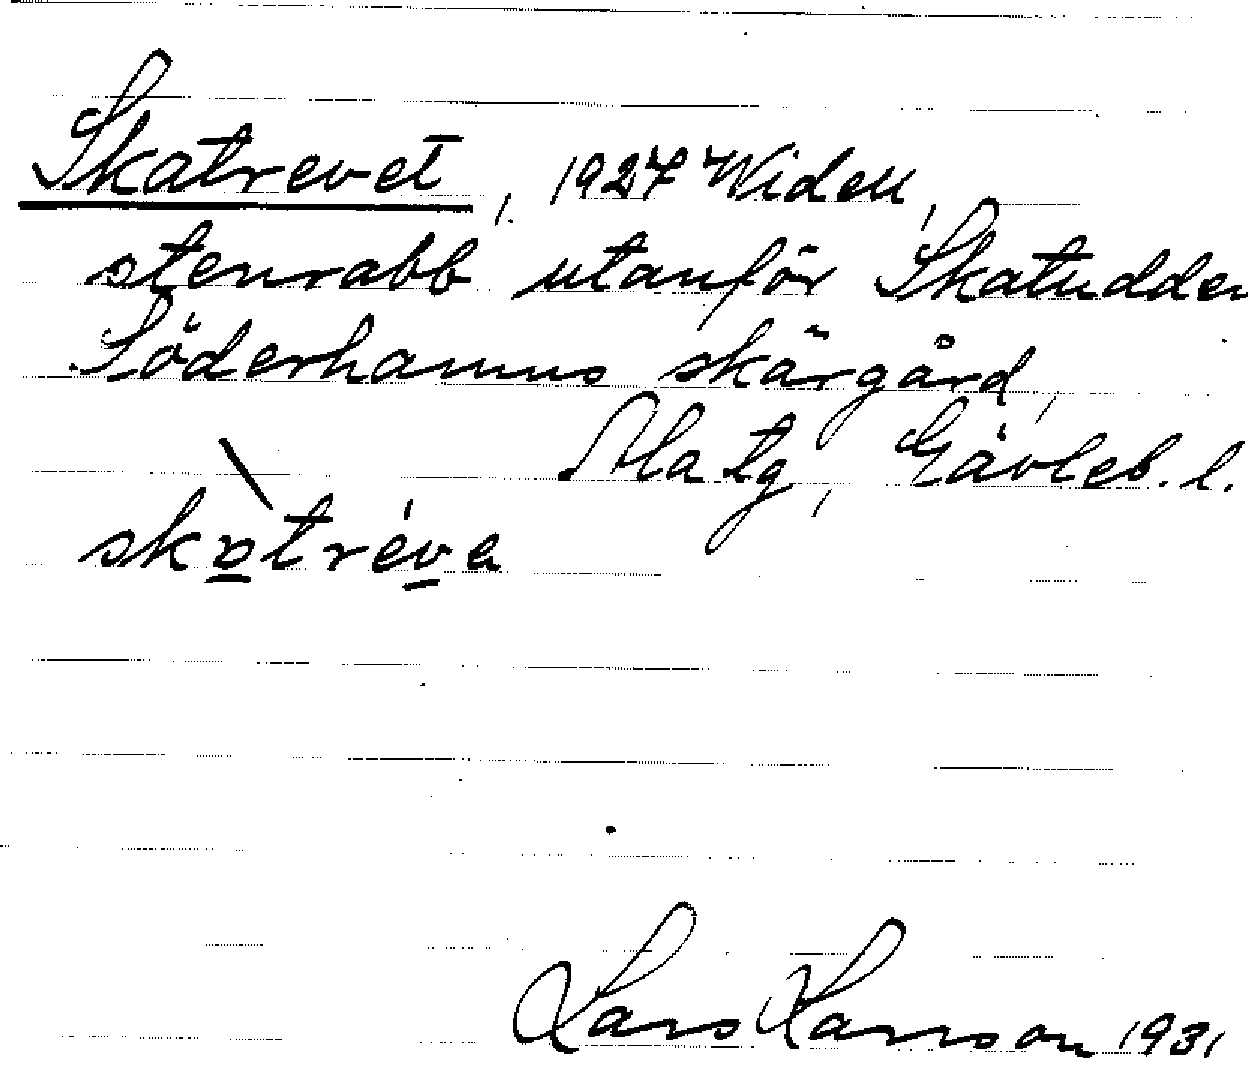 Skatrevet, 1927 Widell,
stenrabb utanför Skatudden
Söderhamns skärgård,
Ala tg, Gävleb. l.
skɒtréve
Lars Larsson 1931